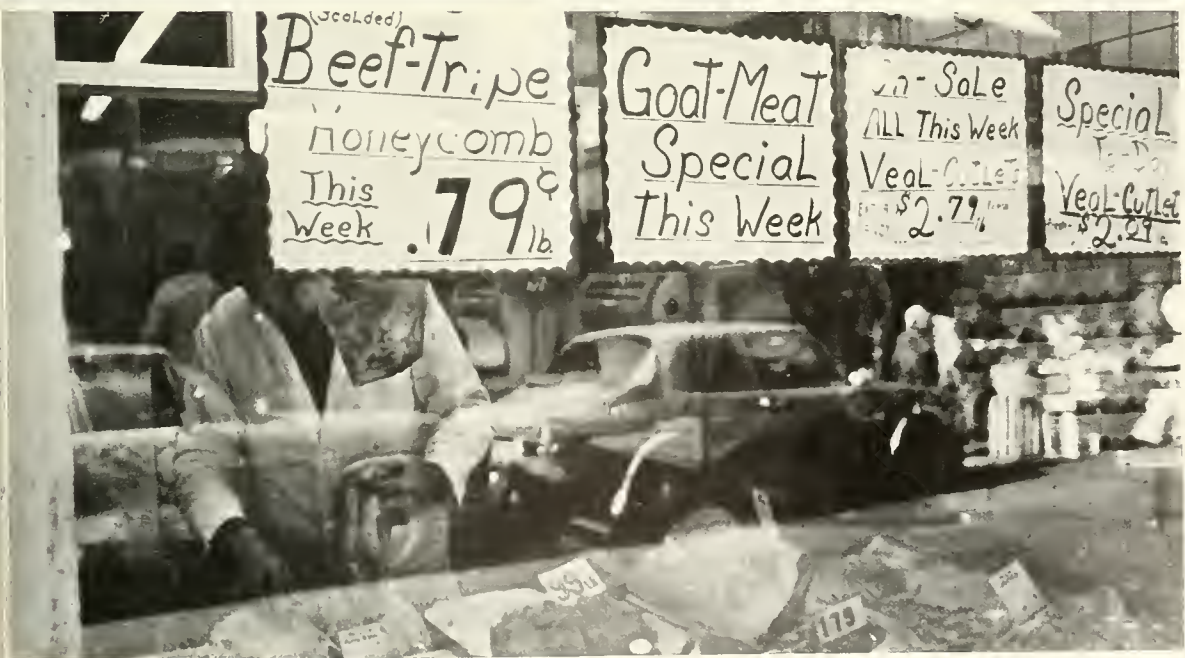 (Scalded)
Beef-Tripe
Honeycomb
This
Week
.79¢
lb.
Goat-Meat
Special
This Week
On-Sale
ALL This Week
Veal-Cutlet
$2.79
lb
Special
Veal-Cutlet
$2.29
99
179